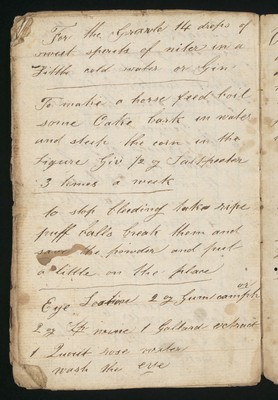 For the Gravle 14 drops of
sweet spirits of niter in a
Little cold water or Gin
To make a horse feed boil
some Oake bark in water
and steep the corn in the
Liquure Giv ½ oz Saltpeater
3 times a week
to stop bleeding take ripe
puff balls break them and
the powder and put
a little on the place
Eye Lotion 2 oz Gum camph or
2 oz wine 1 Gollard extract
1 Quart rose water
wash the eye